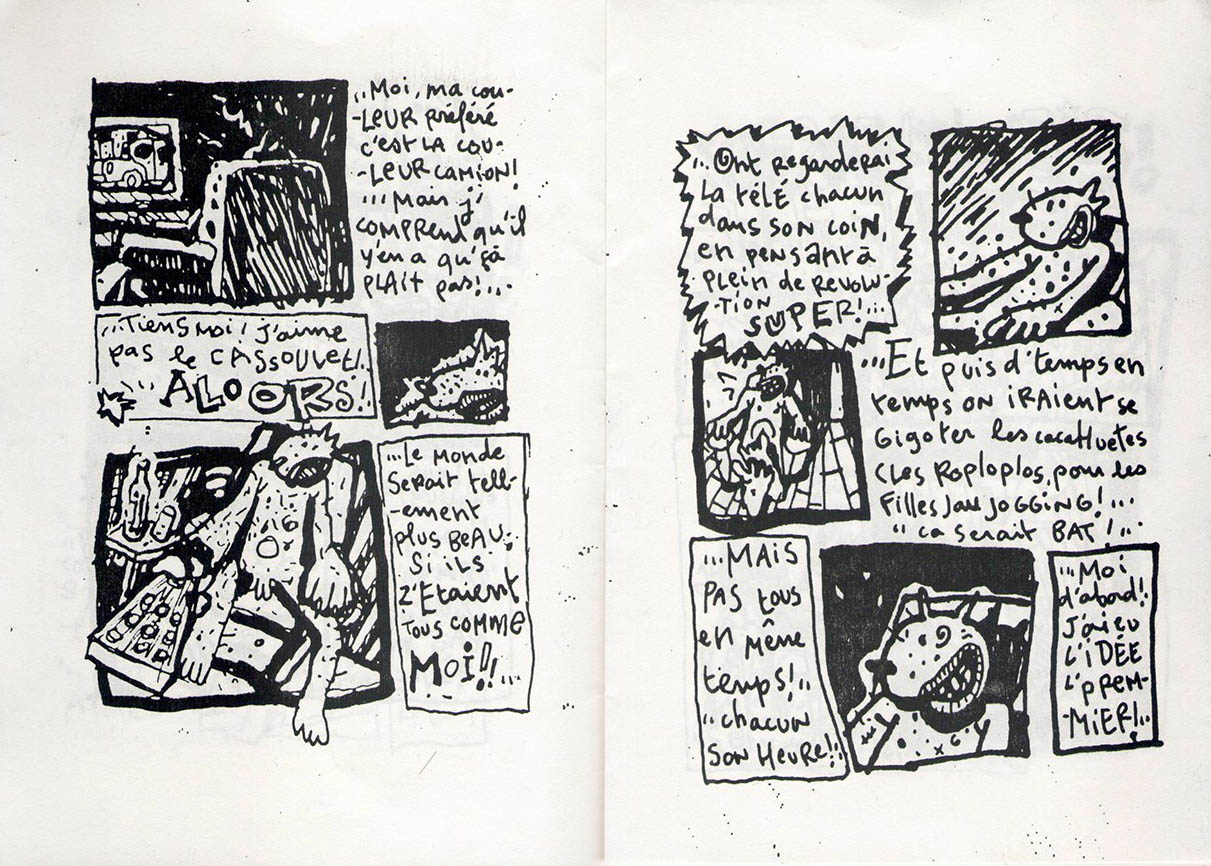 ...Moi, ma cou-
-LEUR préféré
c'est LA COU-
-LEUR CAMION!
...Mais j'
COMPRENT qu'il
y'en a qu'çà
PLAît pas!...
...Tiens moi! j'aime
pas le CASSOULET!.
... ALOORS!
...Le MONDE
SERAIT TELL-
-EMENT
plus BEAU.
Si ils
Z'ETAIENT
TOUS COMME
MOi!!...
...Ont regarderai
La télé chacun
dans son coin,
en pensant à
plein de REVOLU-
-TION
SUPER!...
...Et puis d'temps en
temps on iRAient se
Gigoter les cacahuetes
(Les Roploplos, pour les
Filles) au JOGGING!...
.. ca serait BAT!...
...MAIS
PAS tous
en même
temps!..
.. chacun
SON HEURE!.
...Moi
d'abord!
J'ai eu
L'iDÉE
L'pREM-
-MiER!..